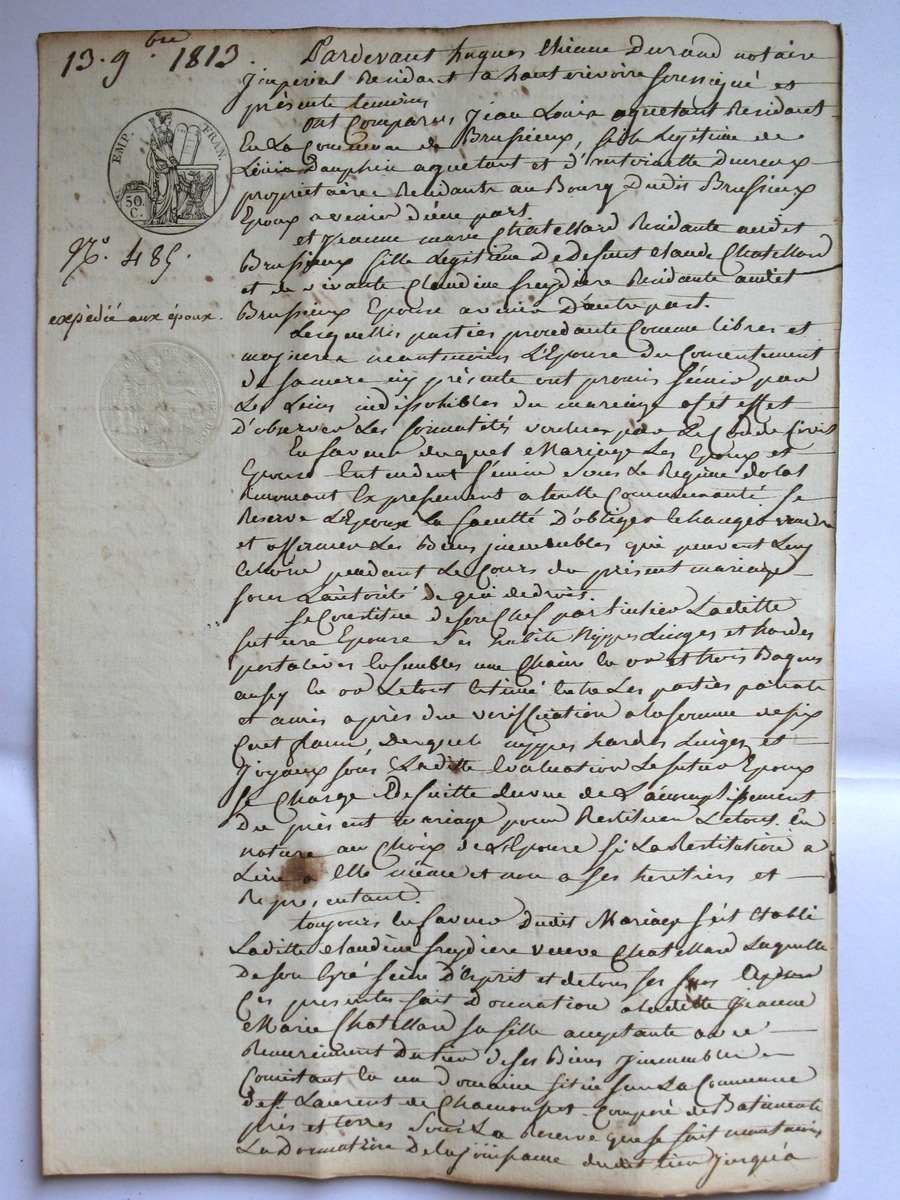 13. 9bre 1813.
Pardevant hugues Etienne Durand notaire
Imperial Residant a hauterivoire soussigné et
présents temoins
EMP. FRAN.
50. C.
Ont Comparus Jean Louis aguetant Residant
En La Commune de Brussieux, fils Legitime de
Louis Dauphin aguetant et d'antoinette Dureux
propriétaires Residants au Bourg Dudit Brussieux
Epoux avenir d'une part
N.° 485.
et Jeanne marie Chatellard Residante audit
Brussieux fille Legitime De Defunt Claude Chatellard
et de vivante Claudine freydiere Residante audit
expédié aux époux.
Brussieux Epouse avenir D'autre part.
Lesquelles parties procedante Comme libres et
majeures neantmoins L'Epouse Du Consentement
de sa mere icy présente ont promis s'unir par
Les Liens indissolubles du mariage et a cet effet
D'observer Les formalités voulues par Le Code Civil
En faveur duquel Mariage Les Epoux et
Epouse Entendent s'unir sous Le Regime dotal
Renoncant Expressement a toutte Communauté se
Reserve L'Epouse La faculté D'obliger Echanger vendre
et affermer Les Biens immeubles qui peuvent Leur
Echoir pendant Le Cours du présent mariage
sous L'autorité de qui de droit.
se Constitue de son Chef particulier Laditte
future Epouse ses habits Nippes Linges et hardes
portatives Ensembles une Chaine En or et trois Bagues
aussy En or Le tout Estimé Entre Les parties parents
et amis après due verification a la somme de six
Cent francs Desquels nippes hardes Linges et
Joyaux sous Laditte Evaluation Le futur Epoux
se Charge Desuitte de L'accomplissement
Du présent Mariage pour Restituer Le tout En
nature au Choix de L'Epouse si La Restitution a
Lieu a Elle même et non a ses heritiers et
Représentant.
toujours En faveur Dudit Mariage s'est Etabli
Laditte Claudine freydiere veuve Chatellard Laquelle
De son Gré seine D'Esprit et de tous ses sens
Ces présentes fait Donnation a laditte Jeanne
Marie Chatellard sa fille acceptante avec
Remerciment Du tiers de ses Biens Immeubles
Consistant En un Domaine Situé sur La Commune
de St. Laurent de Chamousset Composé de Batiments
prés et terres Sous La Reserve que se fait neantmoins
La Donnatrice De la jouissance dudit tiers jusqu'a